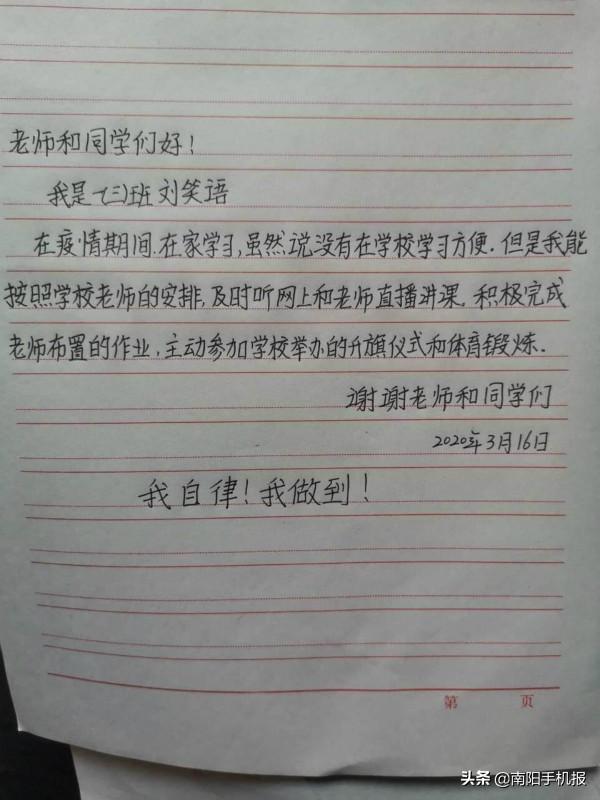 老师和同学们好！
我是七(三)班刘笑语
在疫情期间.在家学习,虽然说没有在学校学习方便.但是我能
按照学校老师的安排,及时听网上和老师直播讲课.积极完成
老师布置的作业,主动参加学校举办的升旗仪式和体育锻炼.
谢谢老师和同学们
2020年3月16日
我自律！我做到！
第 页
头条@南阳手机报